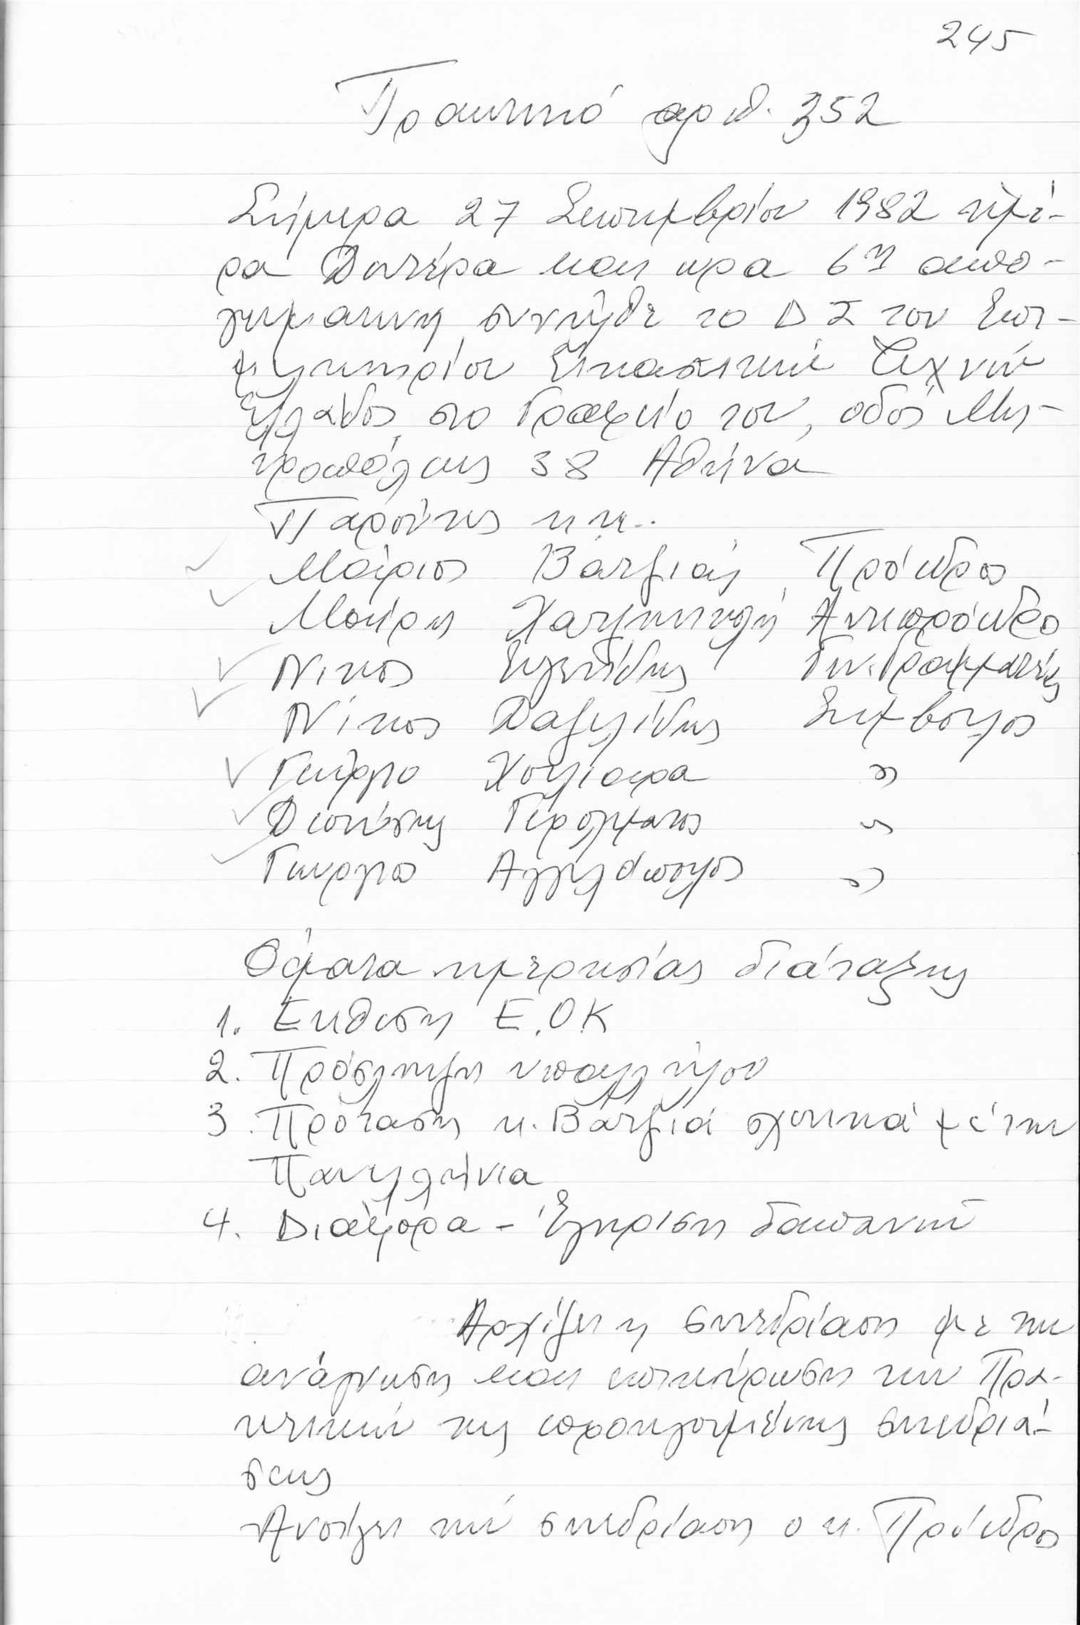 245
Πρακτικό αριθ. 352
Σήμερα 27 Σεπτεμβρίου 1982 ημέ-
ρα Δευτέρα και ωρα 6η απο-
γευματινη συνηλθε το ΔΣ του Επι-
μελητηρίου Εικαστικών Τεχνών
Ελλάδος στο Γραφείο του, οδός Μη-
τροπόλεως 38 Αθήνα
Παρόντες κ.κ.
Μάριος Βατζιάς Πρόεδρος
Μαίρη Χατζηνικολή Αντιπρόεδρο
Νικος Ευγενίδης Γεν. Γραμματέας
Νίκος Δαζιλίδης Σύμβουλος
Γεώργιο Χουλιαρα "
Διονύσης Γερολυματος "
Γεωργιο Αγγελόπουλος "
Θέματα ημερησίας διάταξης
1. Εκθεση Ε.ΟΚ
2. Πρόσληψη υπαλλήλου
3. Πρόταση κ. Βατζιά σχετικά με την
Πανελλήνια
4. Διάφορα - Έγκριση δαπανών
Αρχίζει η συνεδρίαση με την
ανάγνωση και επικύρωση των Πρα-
κτικών της προηγουμένης συνεδριά-
σεως
Ανοίγει την συνεδρίαση ο κ. Πρόεδρος